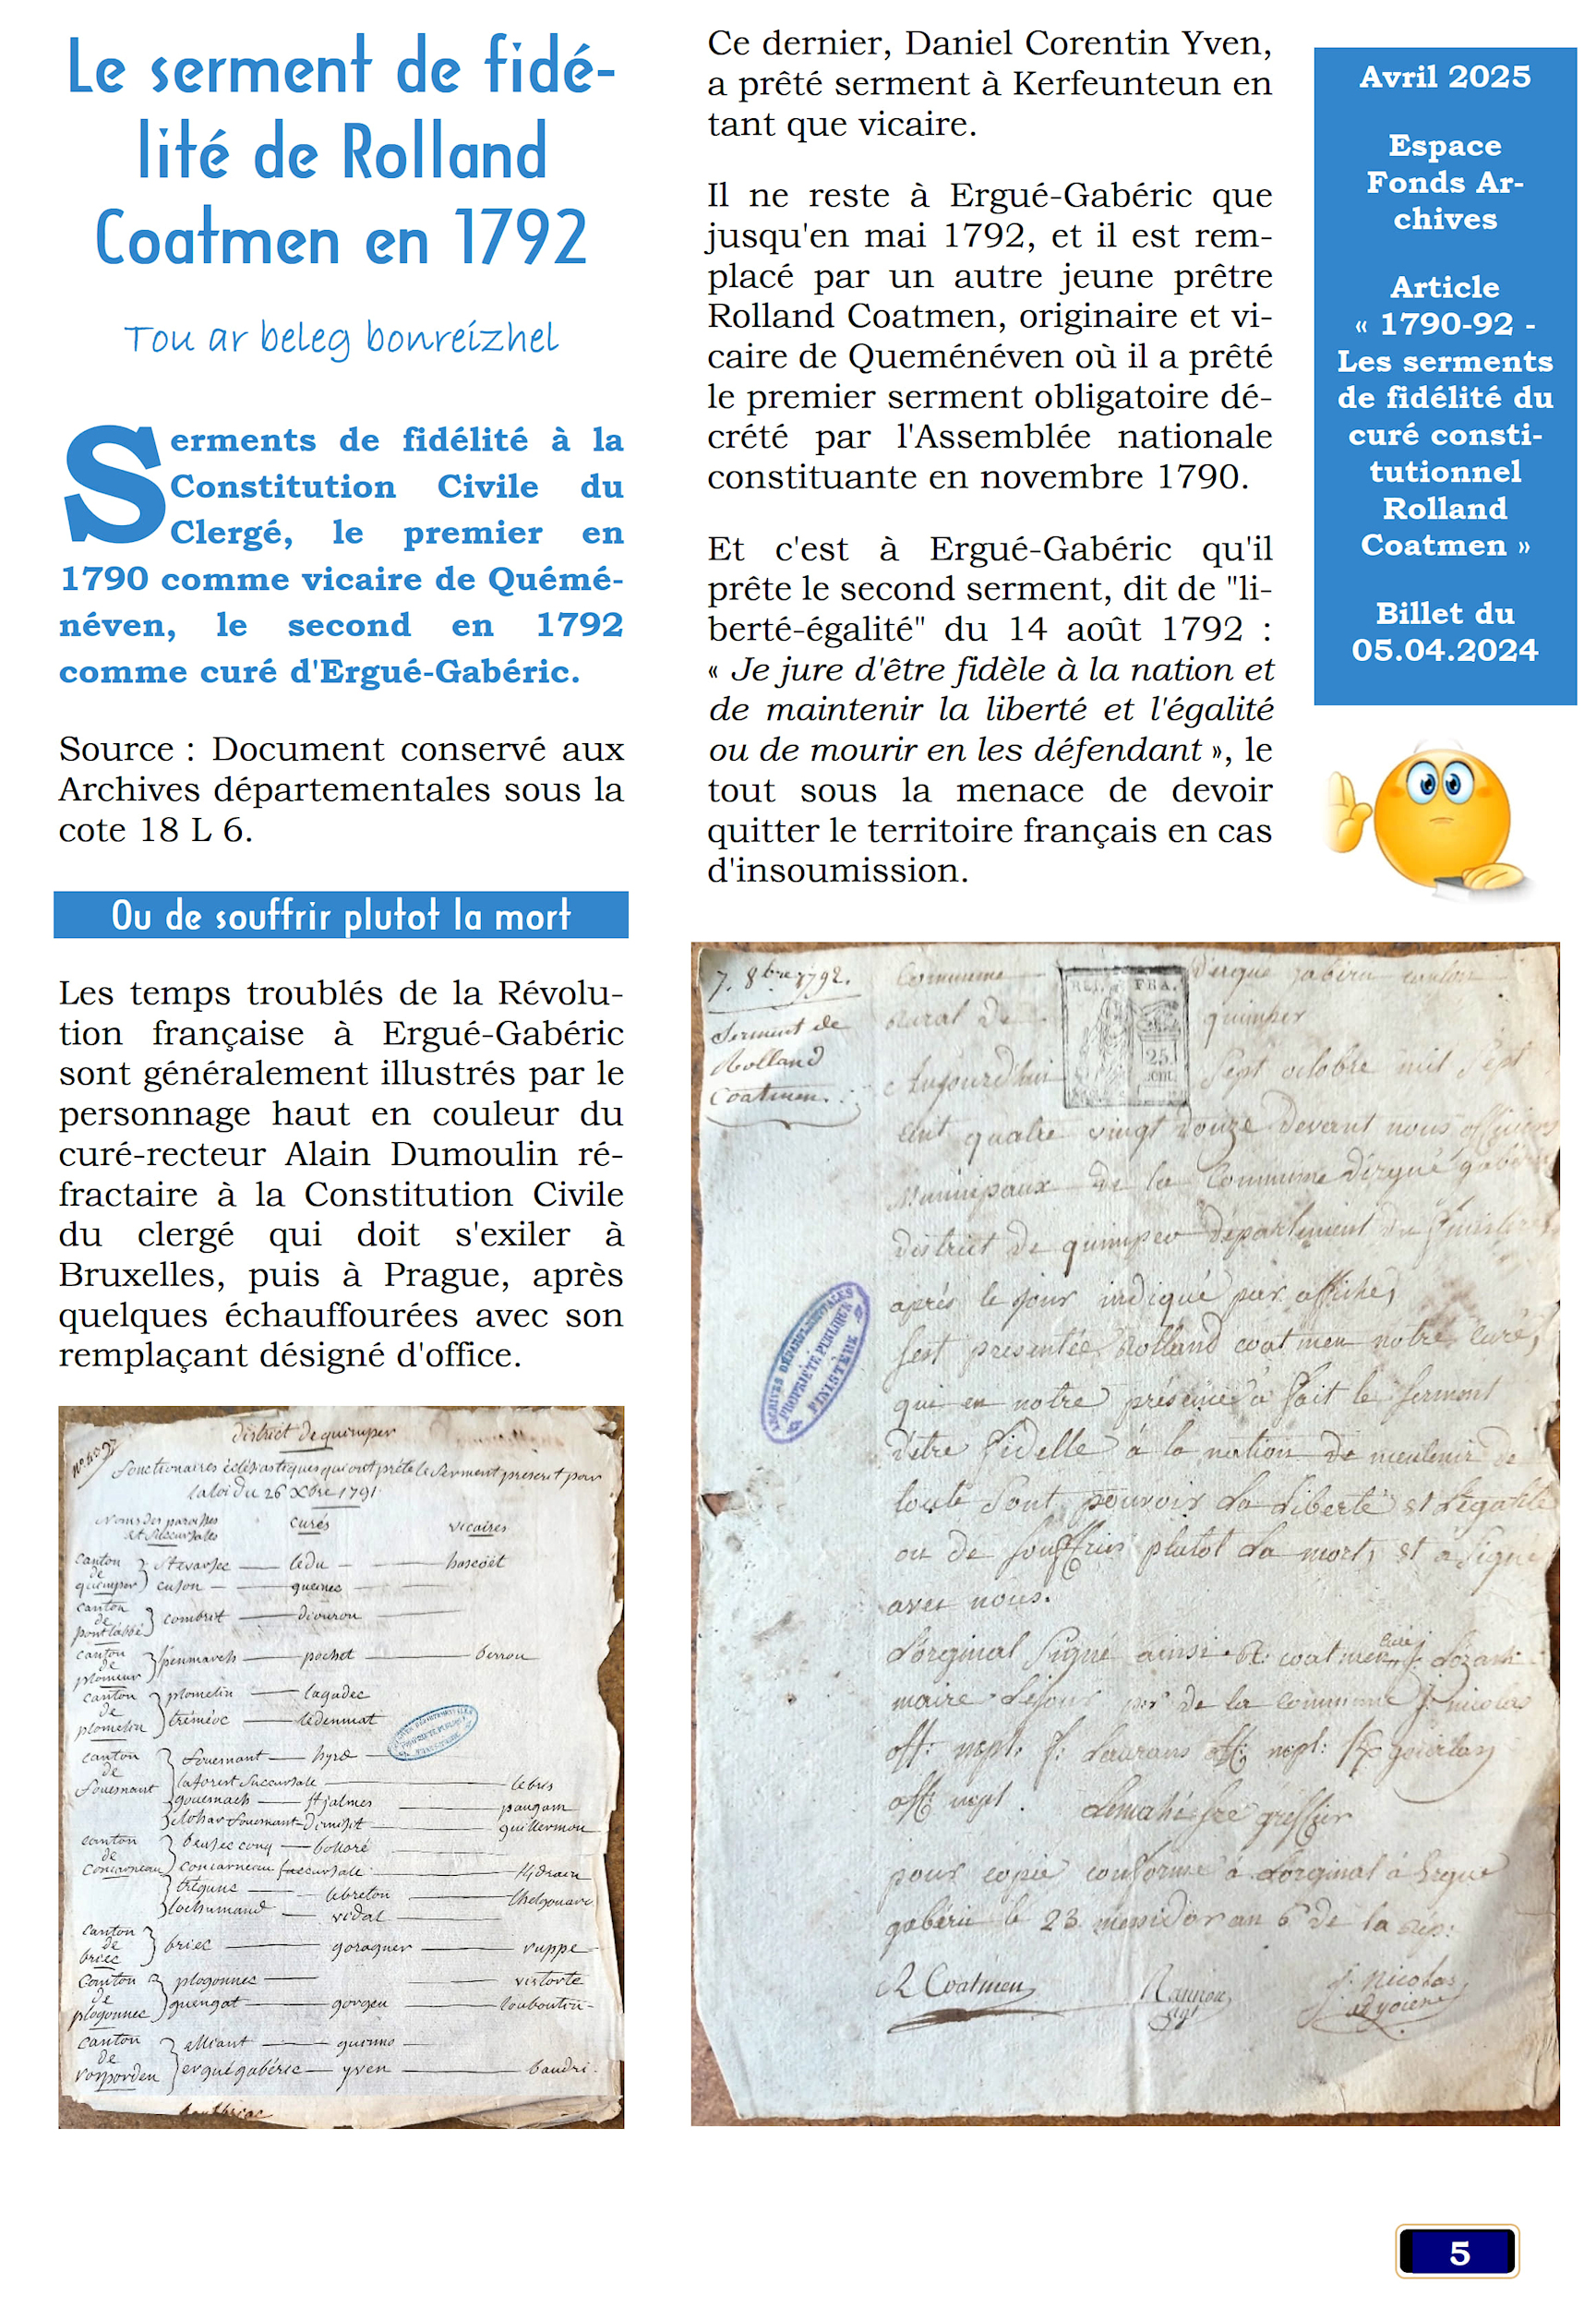 Le serment de fidé-
lité de Rolland
Coatmen en 1792
Tou ar beleg bonreizhel
Serments de fidélité à la
Constitution Civile du
Clergé, le premier en
1790 comme vicaire de Quémé-
néven, le second en 1792
comme curé d'Ergué-Gabéric.
Source : Document conservé aux
Archives départementales sous la
cote 18 L 6.
Ou de souffrir plutot la mort
Les temps troublés de la Révolu-
tion française à Ergué-Gabéric
sont généralement illustrés par le
personnage haut en couleur du
curé-recteur Alain Dumoulin ré-
fractaire à la Constitution Civile
du clergé qui doit s'exiler à
Bruxelles, puis à Prague, après
quelques échauffourées avec son
remplaçant désigné d'office.
district de quimper
fonctionaires écclésiastiques qui ont prété le Serment prescrit par
la loi du 26 Xbre 1791
Noms des paroisses et Succursales curés vicaires
canton de quimper cuzon
canton de pontlabbé combrit diouron
canton de plomeur penmarch pochet berrou
canton de plomelin plomelin lagadec
treméoc ledenmat
canton de fouesnant fouesnant hyré
laforest Succursale lebris
gouesnach st jalmes paugam
guillermou
canton de Concarneau beuzec conq bolloré
concarneau Succursale
trégunc lebreton
lochumand vidal
canton de briec briec goraguer ruppe
canton de plogonnec plogonnec vistorte
guengat gorgeu
canton de rosporden elliant guermo
ergué gabéric yven baudri
Ce dernier, Daniel Corentin Yven,
a prêté serment à Kerfeunteun en
tant que vicaire.
Il ne reste à Ergué-Gabéric que
jusqu'en mai 1792, et il est rem-
placé par un autre jeune prêtre
Rolland Coatmen, originaire et vi-
caire de Queménéven où il a prêté
le premier serment obligatoire dé-
crété par l'Assemblée nationale
constituante en novembre 1790.
Et c'est à Ergué-Gabéric qu'il
prête le second serment, dit de "li-
berté-égalité" du 14 août 1792 :
« Je jure d'être fidèle à la nation et
de maintenir la liberté et l'égalité
ou de mourir en les défendant », le
tout sous la menace de devoir
quitter le territoire français en cas
d'insoumission.
7. 8bre 1792.
Serment de
Rolland
Coatmen.
Commune d'ergue gaberic
Rural de quimper
Aujourd'huy Sept octobre mil Sept
cent quatre vingt douze devant nous officiers
Municipaux de la Commune d'ergué gabéric
district de quimper département du finistere
après le jour indiqué par affiche,
sest presentée Rolland coatmen notre curé,
qui en notre présence a fait le serment
d'etre fidelle à la nation de meintenir de
toute Sont pouvoir La Liberté et Légalité
ou de souffrir plutot La mort, et a Signé
avec nous.
ARCHIVES DÉPARTEMENTALES
PROPRIÉTÉ PUBLIQUE
FINISTÈRE
L'orginal Signé ainsi R: coatmen curé,
maire de la commune J: nicolas
off: mpl: f: Laurans off: mpl:
off: mpl. greffier
pour copie conforme à L'orginal à Ergue
gabéric le 23 messidor an 6 de la rep:
R Coatmen
J. Nicolas
Avril 2025
Espace
Fonds Ar-
chives
Article
« 1790-92 -
Les serments
de fidélité du
curé consti-
tutionnel
Rolland
Coatmen »
Billet du
05.04.2024
5